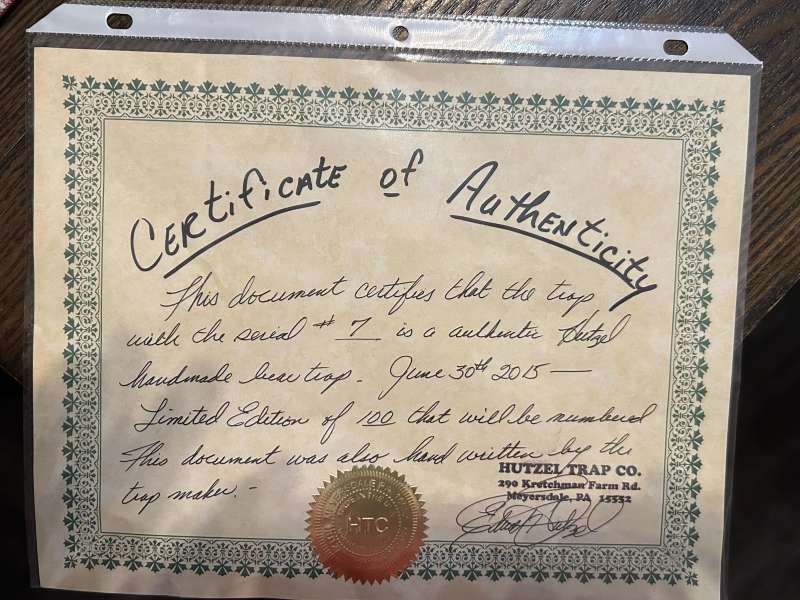 Certificate of Authenticity
This document certifies that the trap
with the serial # 7 is a authentic Hutzel
handmade bear trap. June 30th 2015 —
Limited Edition of 100 that will be numbered
This document was also hand written by the
trap maker. -
HUTZEL TRAP CO.
290 Kretchman Farm Rd.
Meyersdale, PA 15552
HTC